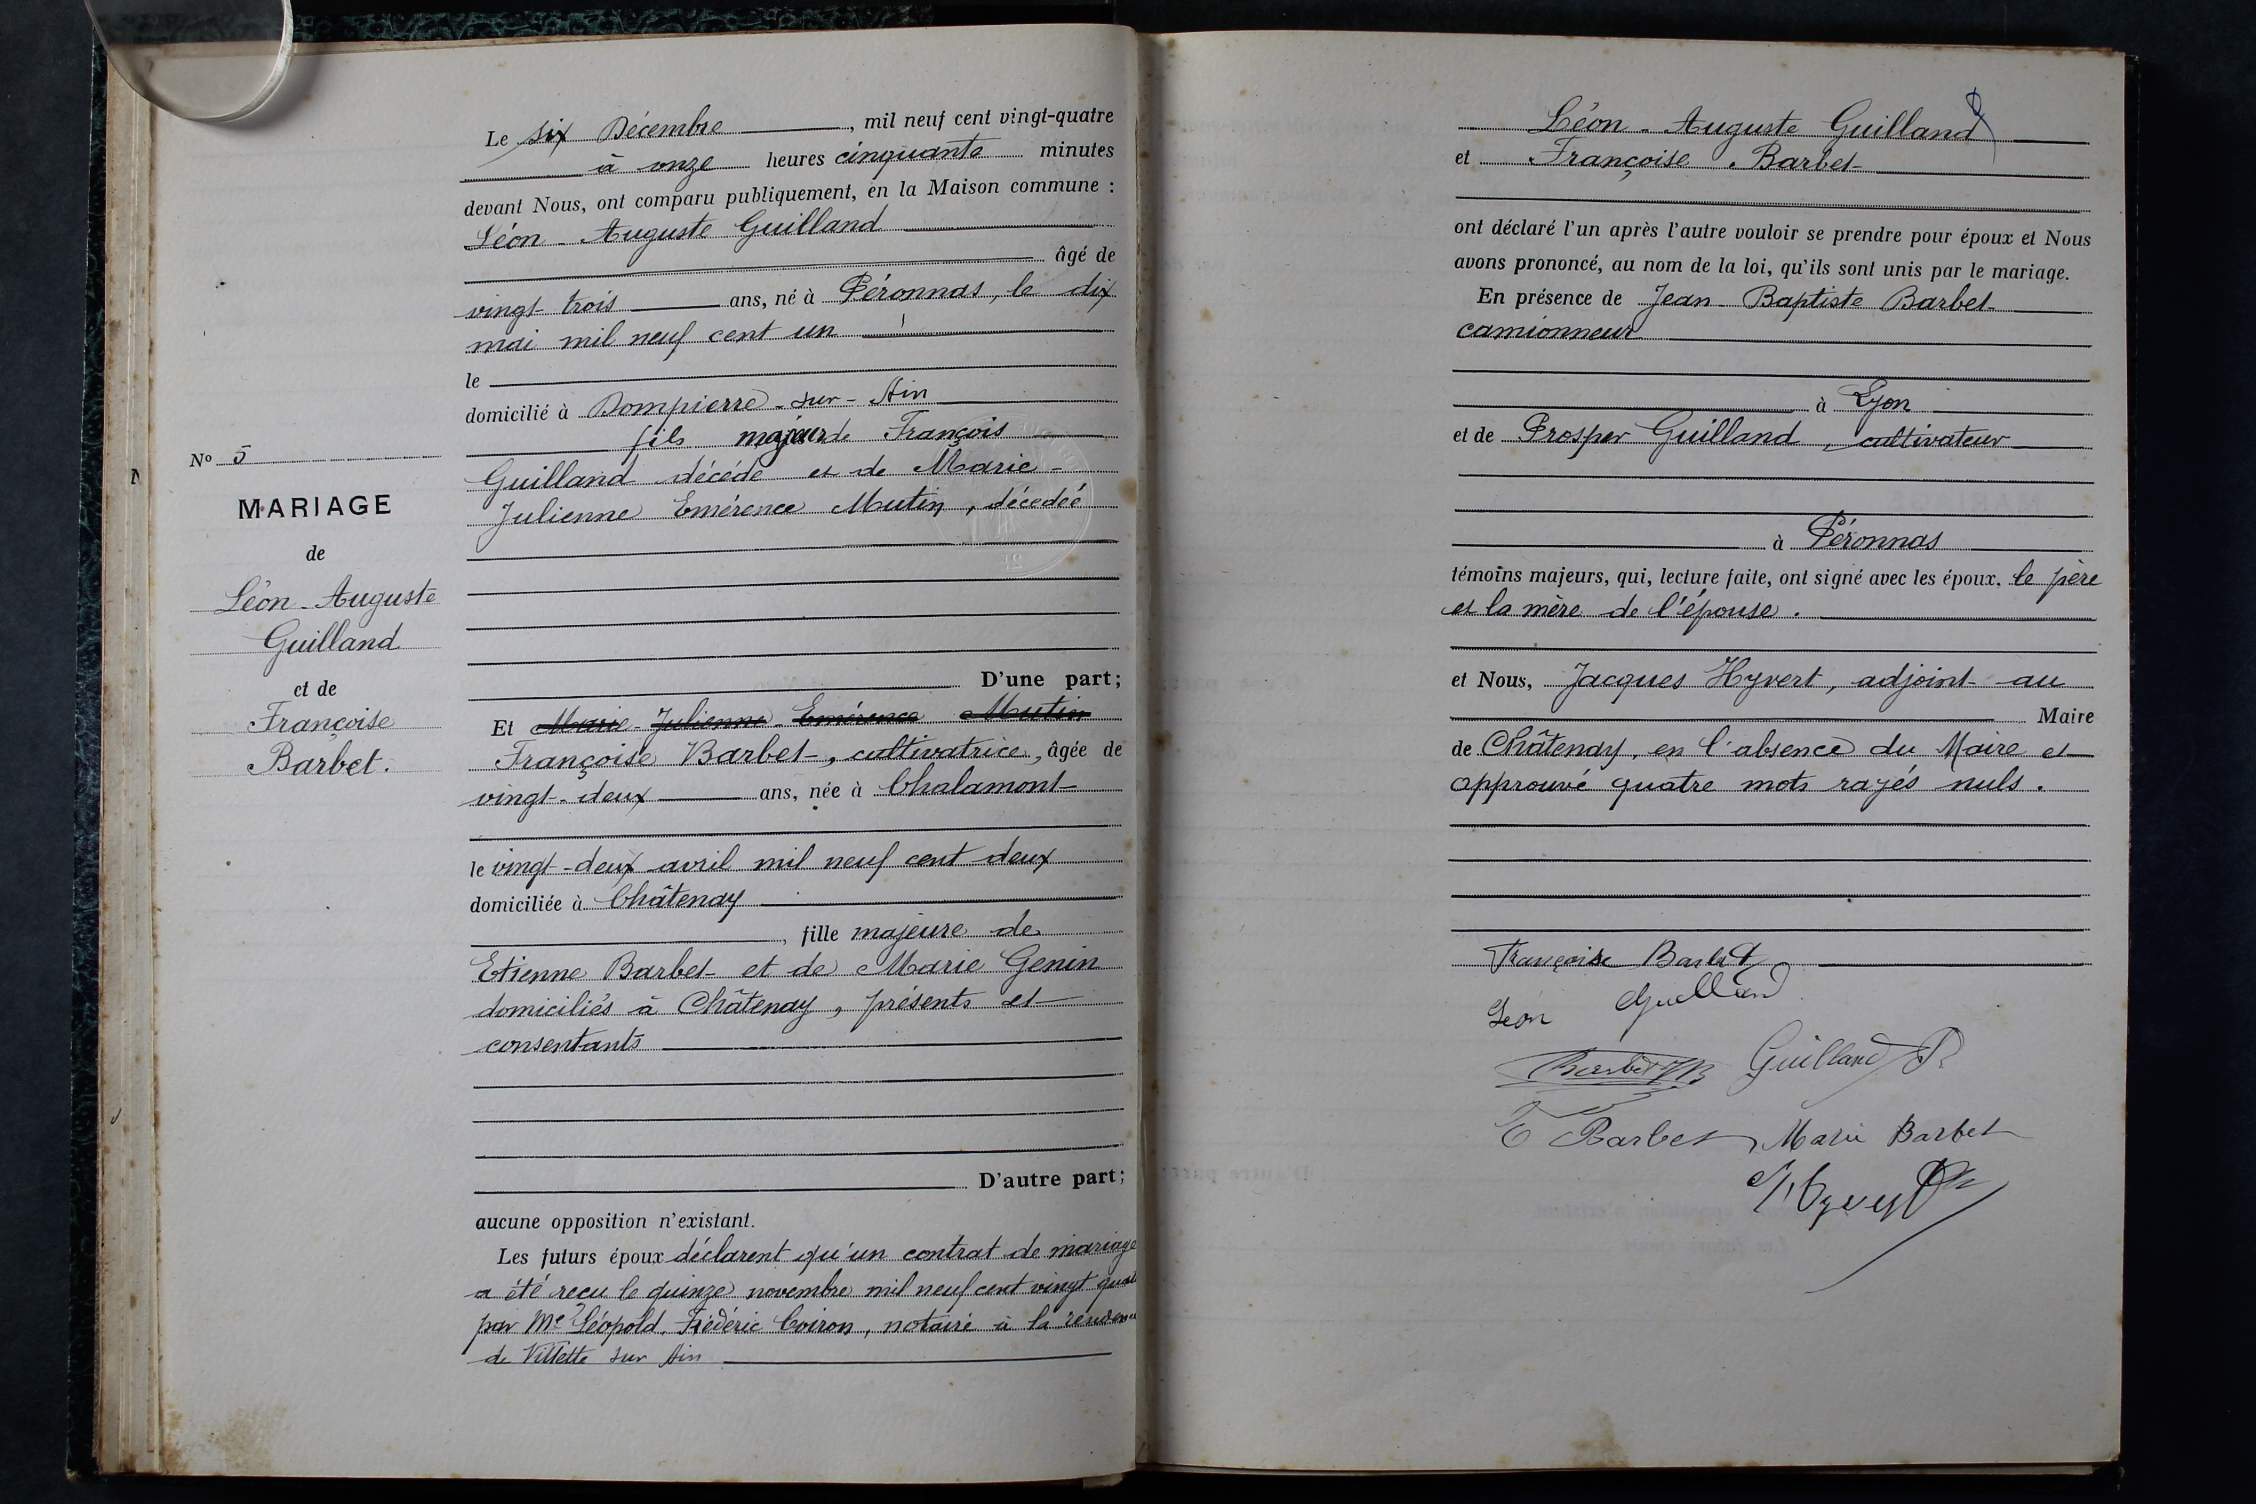 Le six Décembre, mil neuf cent vingt-quatre
à onze heures cinquante minutes
devant Nous, ont comparu publiquement, en la Maison commune :
Léon-Auguste Guilland
âgé de
vingt-trois ans, né à Péronnas, le dix
mai mil neuf cent un
le
domicilié à Dompierre-sur-Ain
fils majeur de François
Guilland décédé et de Marie-
Julienne Emérence Mutin, décedée
D'une part;
Et Marie-Julienne-Emérence Mutin
Françoise Barbet, cultivatrice, âgée de
vingt-deux ans, née à Chalamont
le vingt-deux avril mil neuf cent deux
domiciliée à Châtenay
, fille majeure de
Etienne Barbet et de Marie Genin
domiciliés à Châtenay, présents et
consentants
D'autre part;
aucune opposition n'existant.
Les futurs époux déclarent qu'un contrat de mariage
a été reçu le quinze novembre mil neuf cent vingt
par Me Léopold, Frédéric Coiron, notaire à la
de Villette sur Ain
No 5
MARIAGE
de
Léon-Auguste
Guilland
et de
Françoise
Barbet.
Léon-Auguste Guilland
et Françoise Barbet
ont déclaré l'un après l'autre vouloir se prendre pour époux et Nous
avons prononcé, au nom de la loi, qu'ils sont unis par le mariage.
En présence de Jean-Baptiste Barbet
camionneur
à Lyon
et de Prosper Guilland, cultivateur
à Péronnas
témoins majeurs, qui, lecture faite, ont signé avec les époux, le père
et la mère de l'épouse.
et Nous, Jacques Hyvert, adjoint au
Maire
de Châtenay, en l'absence du Maire et
approuvé quatre mots rayés nuls.
Françoise Barbet
Léon Guilland
Barbet JB Guilland P
E Barbet Marie Barbet
Hyvert